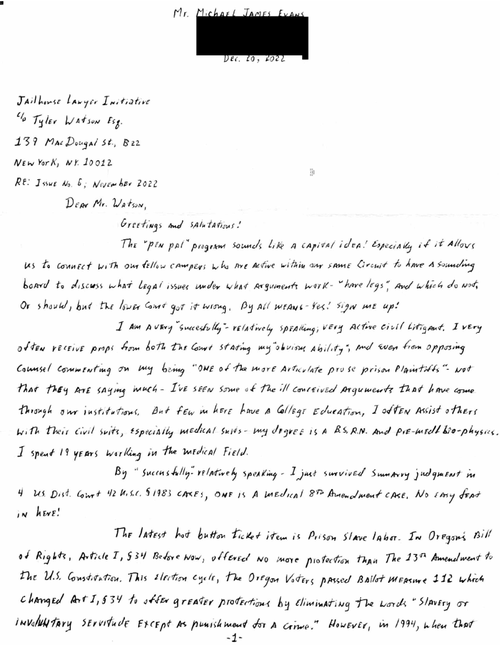 Mr. Michael James Evans
Dec. 20, 2022
Jailhouse Lawyer Initiative
c/o Tyler Watson Esq.
139 MacDougal St., B22
New York, NY. 10012
RE: Issue No. 6; November 2022
Dear Mr. Watson,
Greetings and salutations!
The "pen pal" program sounds like a capital idea! Especially if it allows
us to connect with our fellow campers who are active within our same Circuit to have a sounding
board to discuss what legal issues under what arguments work - "have legs", and which do not,
Or should, but the lower Court got it wrong. By all means - Yes! sign me up!
I am a very "succesfully"- relatively speaking; very active civil litigant. I very
often receive props from both the Court stating my "obvious ability", and even from opposing
Counsel commenting on my being "one of the more articulate pro se prison Plaintiffs" - not
that they are saying much - I've seen some of the ill conceived arguments that have come
through our institutions. But few in here have a College Education, I often assist others
with their civil suits, especially medical suits - my degree is a B.S.R.N. and pre-med bio-physics.
I spent 19 years working in the medical field.
By "successfully" relatively speaking - I just survived summary judgment in
4 US Dist. Court 42 U.S.C. § 1983 cases, one is a medical 8th Amendment case. No easy feat
in here!
The latest hot button ticket item is Prison Slave labor. In Oregon's Bill
of Rights, Article I, § 34 Before now, offered no more protection than the 13th Amendment to
the U.S. Constitution. This election cycle, the Oregon Voters passed Ballot measure 112 which
changed Art I, § 34 to offer greater protections by eliminating the words "slavery or
involuntary servitude except as punishment for a crime." However, in 1994, when that
-1-